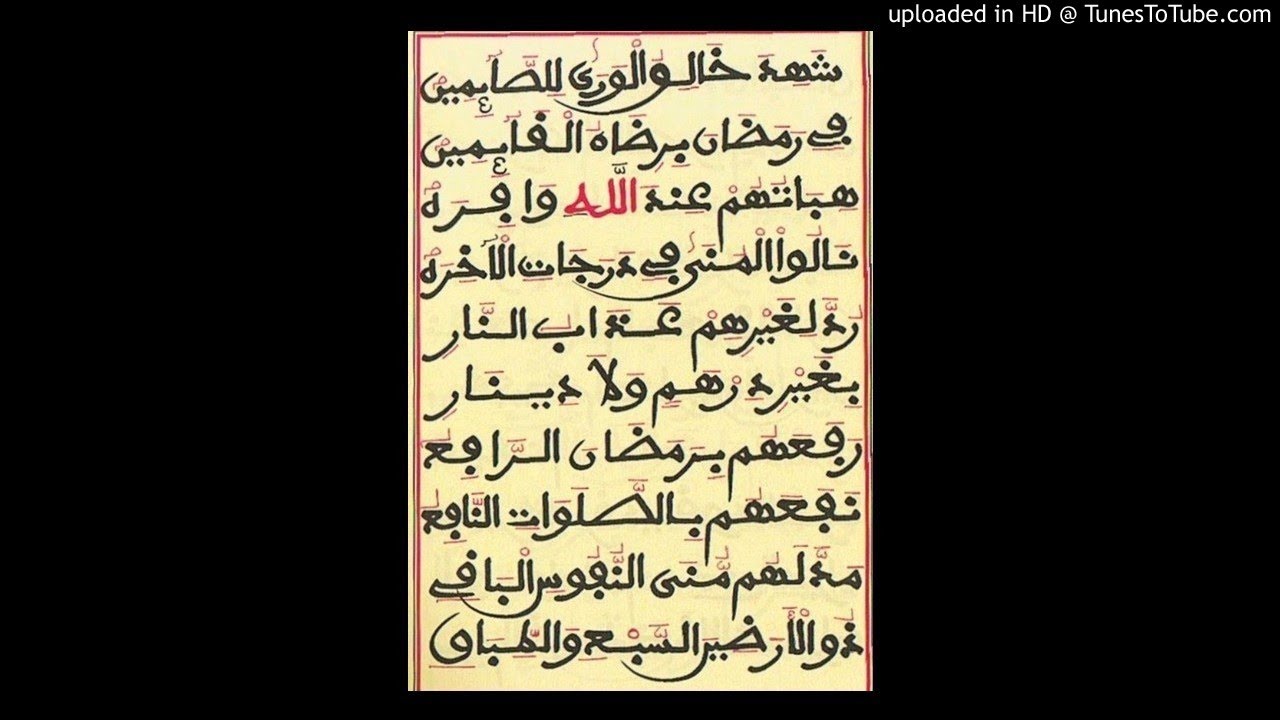 uploaded in HD @ TunesToTube.com
شَهِدَ خَالِقُ الْوَرَى لِلصَّائِمِينْ
فِي رَمَضَانَ بِرِضَاهُ الْقَائِمِينْ
هِبَاتُهُمْ عِنْدَ اللَّهِ وَافِرَهْ
نَالُوا الْمُنَى فِي دَرَجَاتِ الْآخِرَهْ
رَدَّ لِغَيْرِهِمْ عَذَابَ النَّارِ
بِغَيْرِ دِرْهَمٍ وَلَا دِينَارِ
رَفَعَهُمْ بِرَمَضَانَ الرَّافِعُ
نَفَعَهُمْ بِالصَّلَوَاتِ النَّافِعُ
مَدَّ لَهُمْ مُنَى النُّفُوسِ الْبَاقِي
ذُو الْأَرَضِينَ السَّبْعِ وَالطِّبَاقِ